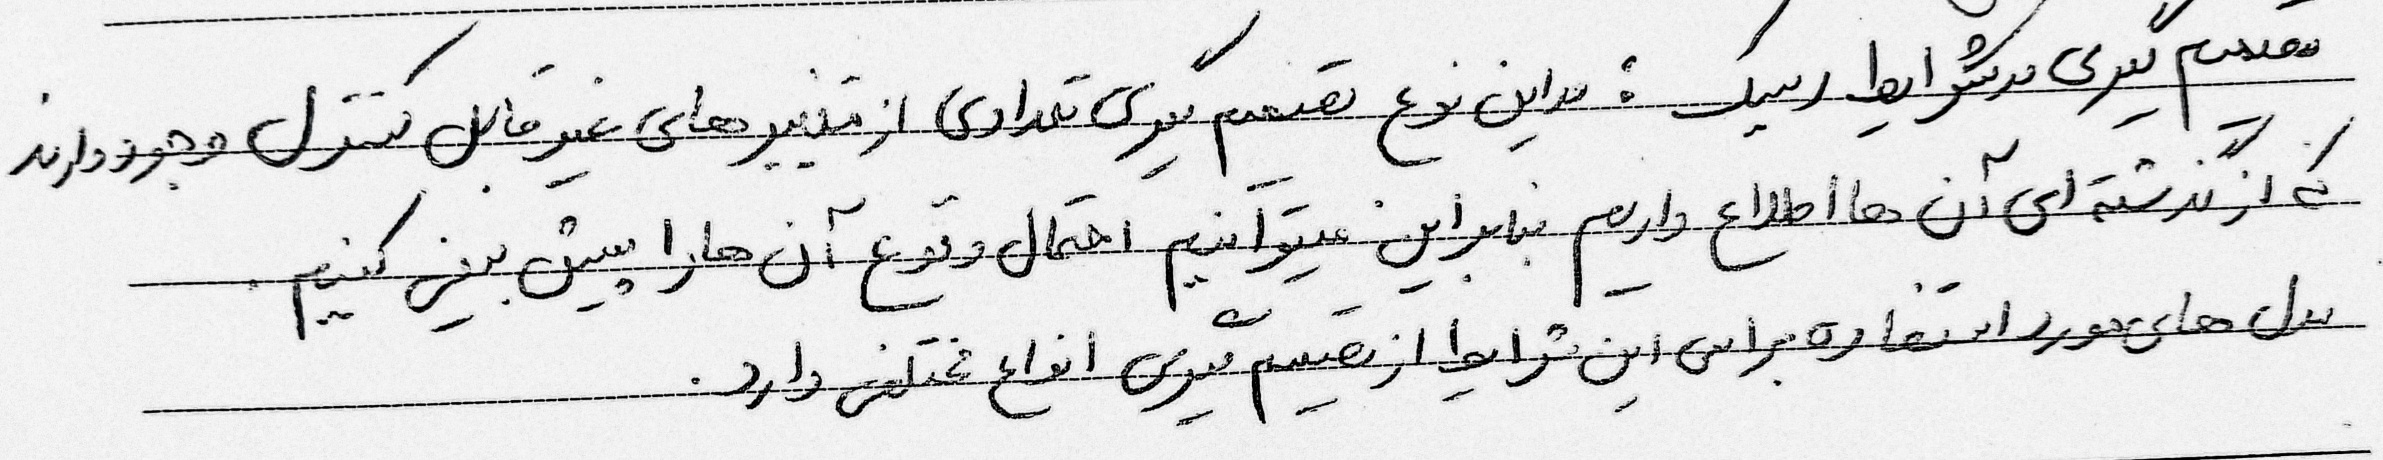 تصمیم گیری در شرایط ریسک : در این نوع تصمیم گیری تعدادی از متغییر های غیر قابل کنترل وجود دارند
که از گذشته ای آن ها اطلاع داریم بنابراین میتوانیم احتمال وقوع آن ها را پیش بینی کنیم .
مدل های مورد استفاده برای این شرایط از تصمیم گیری انواع مختلفی دارد .